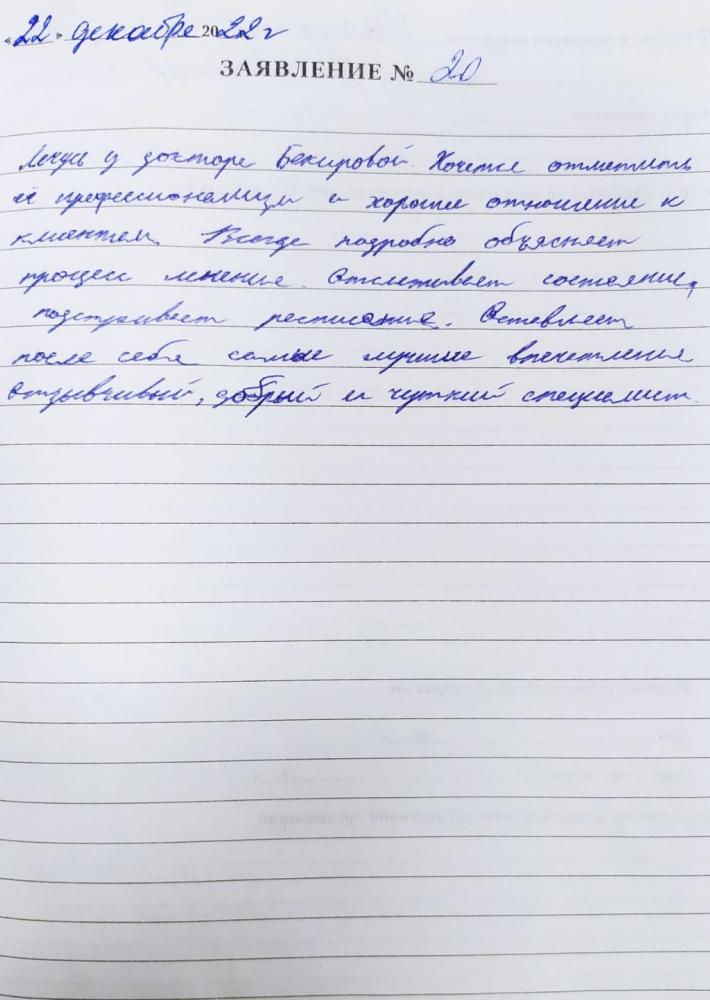 «22» декабря 2022г
ЗАЯВЛЕНИЕ № 20
Лечусь у доктора Бекировой. Хочется отметить
её профессионализм и хорошее отношение к
клиентам. Всегда подробно объясняет
процесс лечения. Отслеживает состояние,
подстраивает расписание. Оставляет
после себя самые лучшие впечатления
Отзывчивый, добрый и чуткий специалист.